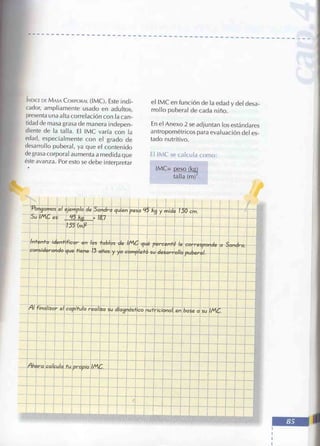 cap.4
ÍNDICE DE MASA CORPORAL (IMC). Este indi-
cador, ampliamente usado en adultos,
presenta una alta correlación con la can-
tidad de masa grasa de manera indepen-
diente de la talla. El IMC varía con la
edad, especialmente con el grado de
desarrollo puberal, ya que el contenido
de grasa corporal aumenta a medida que
éste avanza. Por esto se debe interpretar
el IMC en función de la edad y del desa-
rrollo puberal de cada niño.
En el Anexo 2 se adjuntan los estándares
antropométricos para evaluación del es-
tado nutritivo.
El IMC se calcula como:
IMC= peso (kg)
talla (m)²
Pongamos el ejemplo de Sandra quien pesa 45 kg y mide 1.50 cm.
Su IMC es 45 kg = 18.7
1.55 (m)²
Intenta identificar en las tablas de IMC qué percentil le corresponde a Sandra
considerando que tiene 13 años y ya completó su desarrollo puberal.
Al finalizar el capítulo realiza su diagnóstico nutricional en base a su IMC.
Ahora calcula tu propio IMC.
85